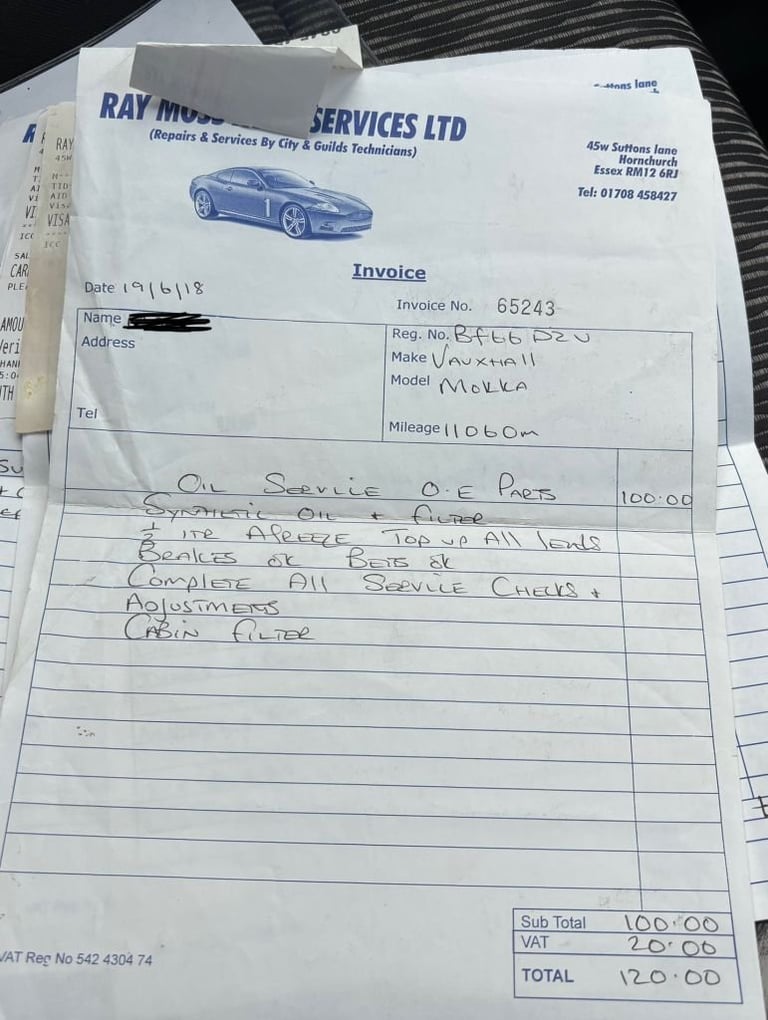 ttons lane
RAY MO SERVICES LTD
(Repairs & Services By City & Guilds Technicians)
45w Suttons lane
Hornchurch
Essex RM12 6RJ
Tel: 01708 458427
Invoice
Date 19/6/18
Invoice No. 65243
Name
Address
Tel
Reg. No. BF66 DZU
Make VAUXHAll
Model MOKKA
Mileage 11060m
OIL SERVICE O.E PARTS 100.00
SYNTHETIC OIL + FILTER
½ ITR AFREEZE TOP UP All levels
BRAKES OK BELTS OK
COMPLETE All SERVICE CHECKS +
ADJUSTMENTS
CABIN FILTER
Sub Total 100.00
VAT 20.00
TOTAL 120.00
VAT Reg No 542 4304 74
RAY
45W
M--
TID
AID
Visa
VISA
ICC
SAL
CAR
PLE
AMOU
Veri